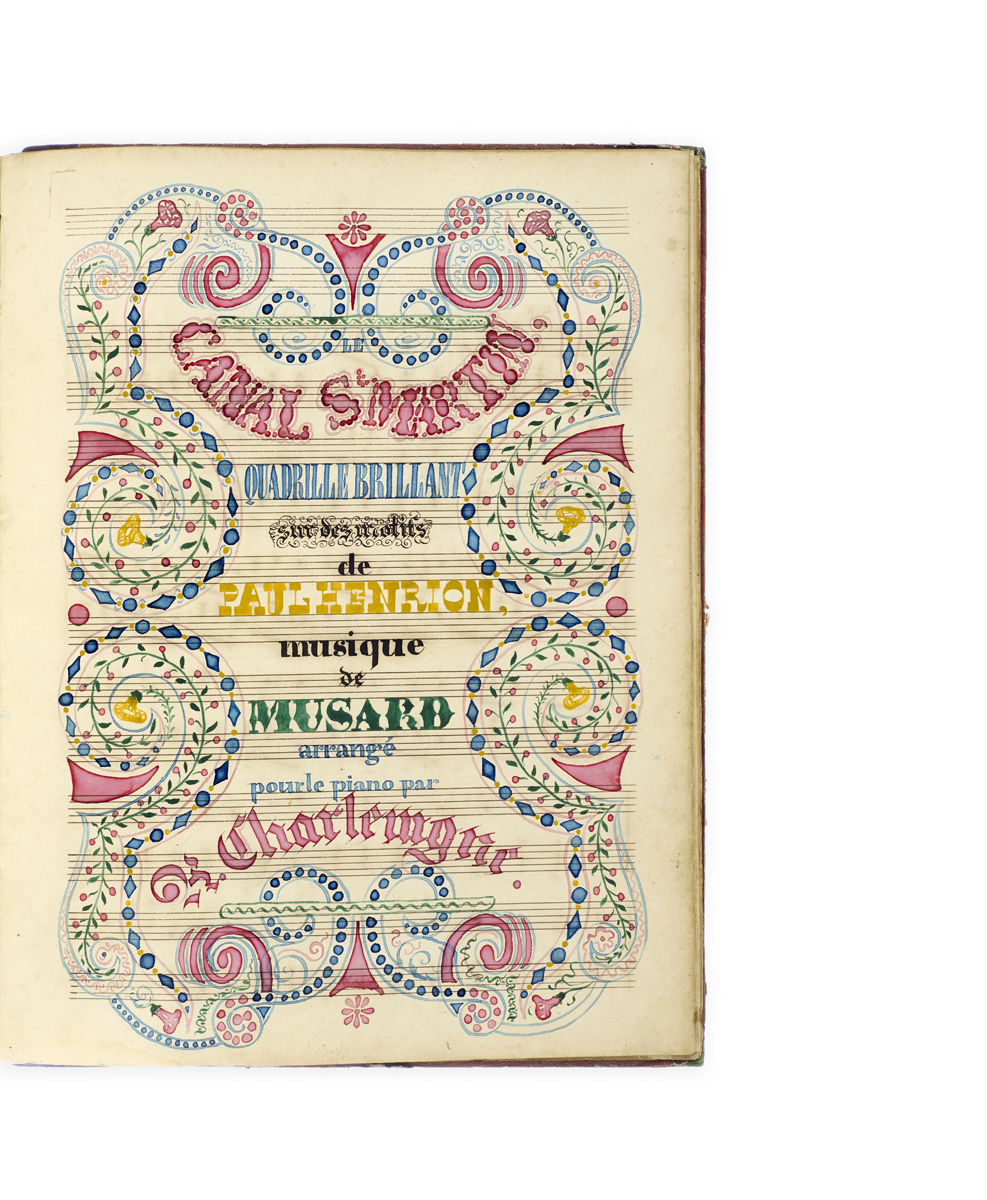 LE
CANAL ST MARTIN,
QUADRILLE BRILLANT
sur des motifs
de
PAUL HENRION,
musique
de
MUSARD
arrangé
pour le piano par
P. Charlemgne.